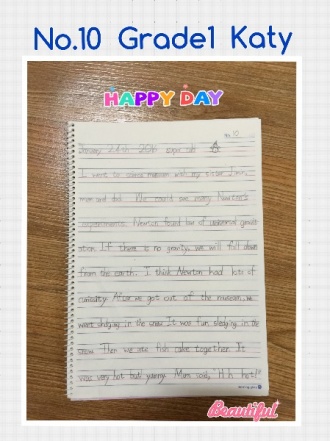 No.10 Grade1 Katy
HAPPY DAY
No. 10
January 24th
I went to science museum with my sister I win,
mom and dad. We could see many Newton's
experiments. Newton found law of universal gravit
ation. If there is no gravity, we will fall down
from the earth. I think Newton had lots of
curiosity. After we got out of the museum, we
went sledging in the snow. It was fun sledging in the
snow. Then we ate fish cake together. It
was very hot but yummy. Mom said, "H.h. hot!"
Beautiful